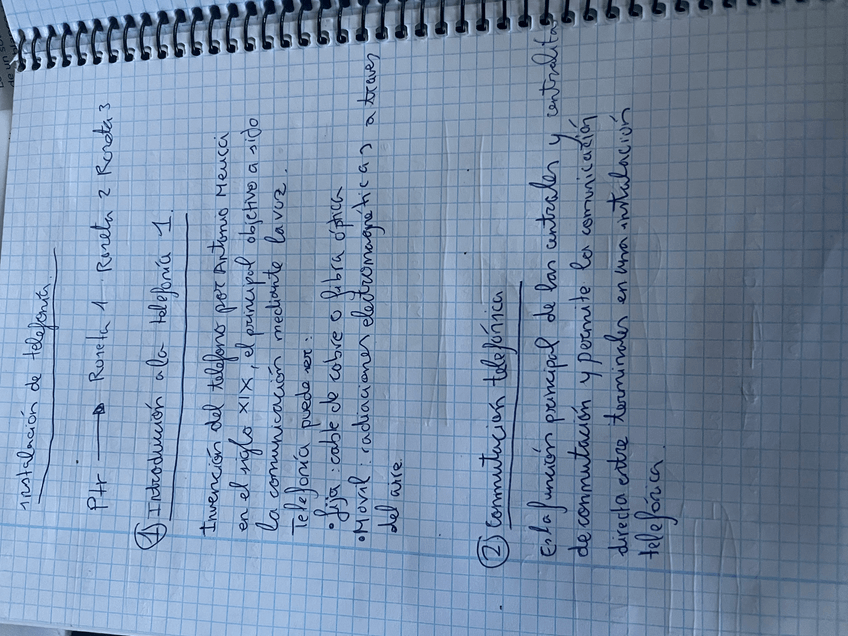 instalación de telefonía.
Ptr → Roseta 1 Roseta 2 Roseta 3
① Introducción a la telefonía 1.
Invención del telefono por Antonio Meucci
en el siglo XIX, el principal objetivo a sido
la comunicación mediante la voz.
Telefonía puede ser:
• fija: cable de cobre o fibra óptica
• Móvil: radiaciones electromagnéticas a traves
del aire.
② Conmutacion telefónica
Es la función principal de las centrales y centralitas
de conmutación y permite la comunicación
directa entre terminales en una instalación
telefónica.